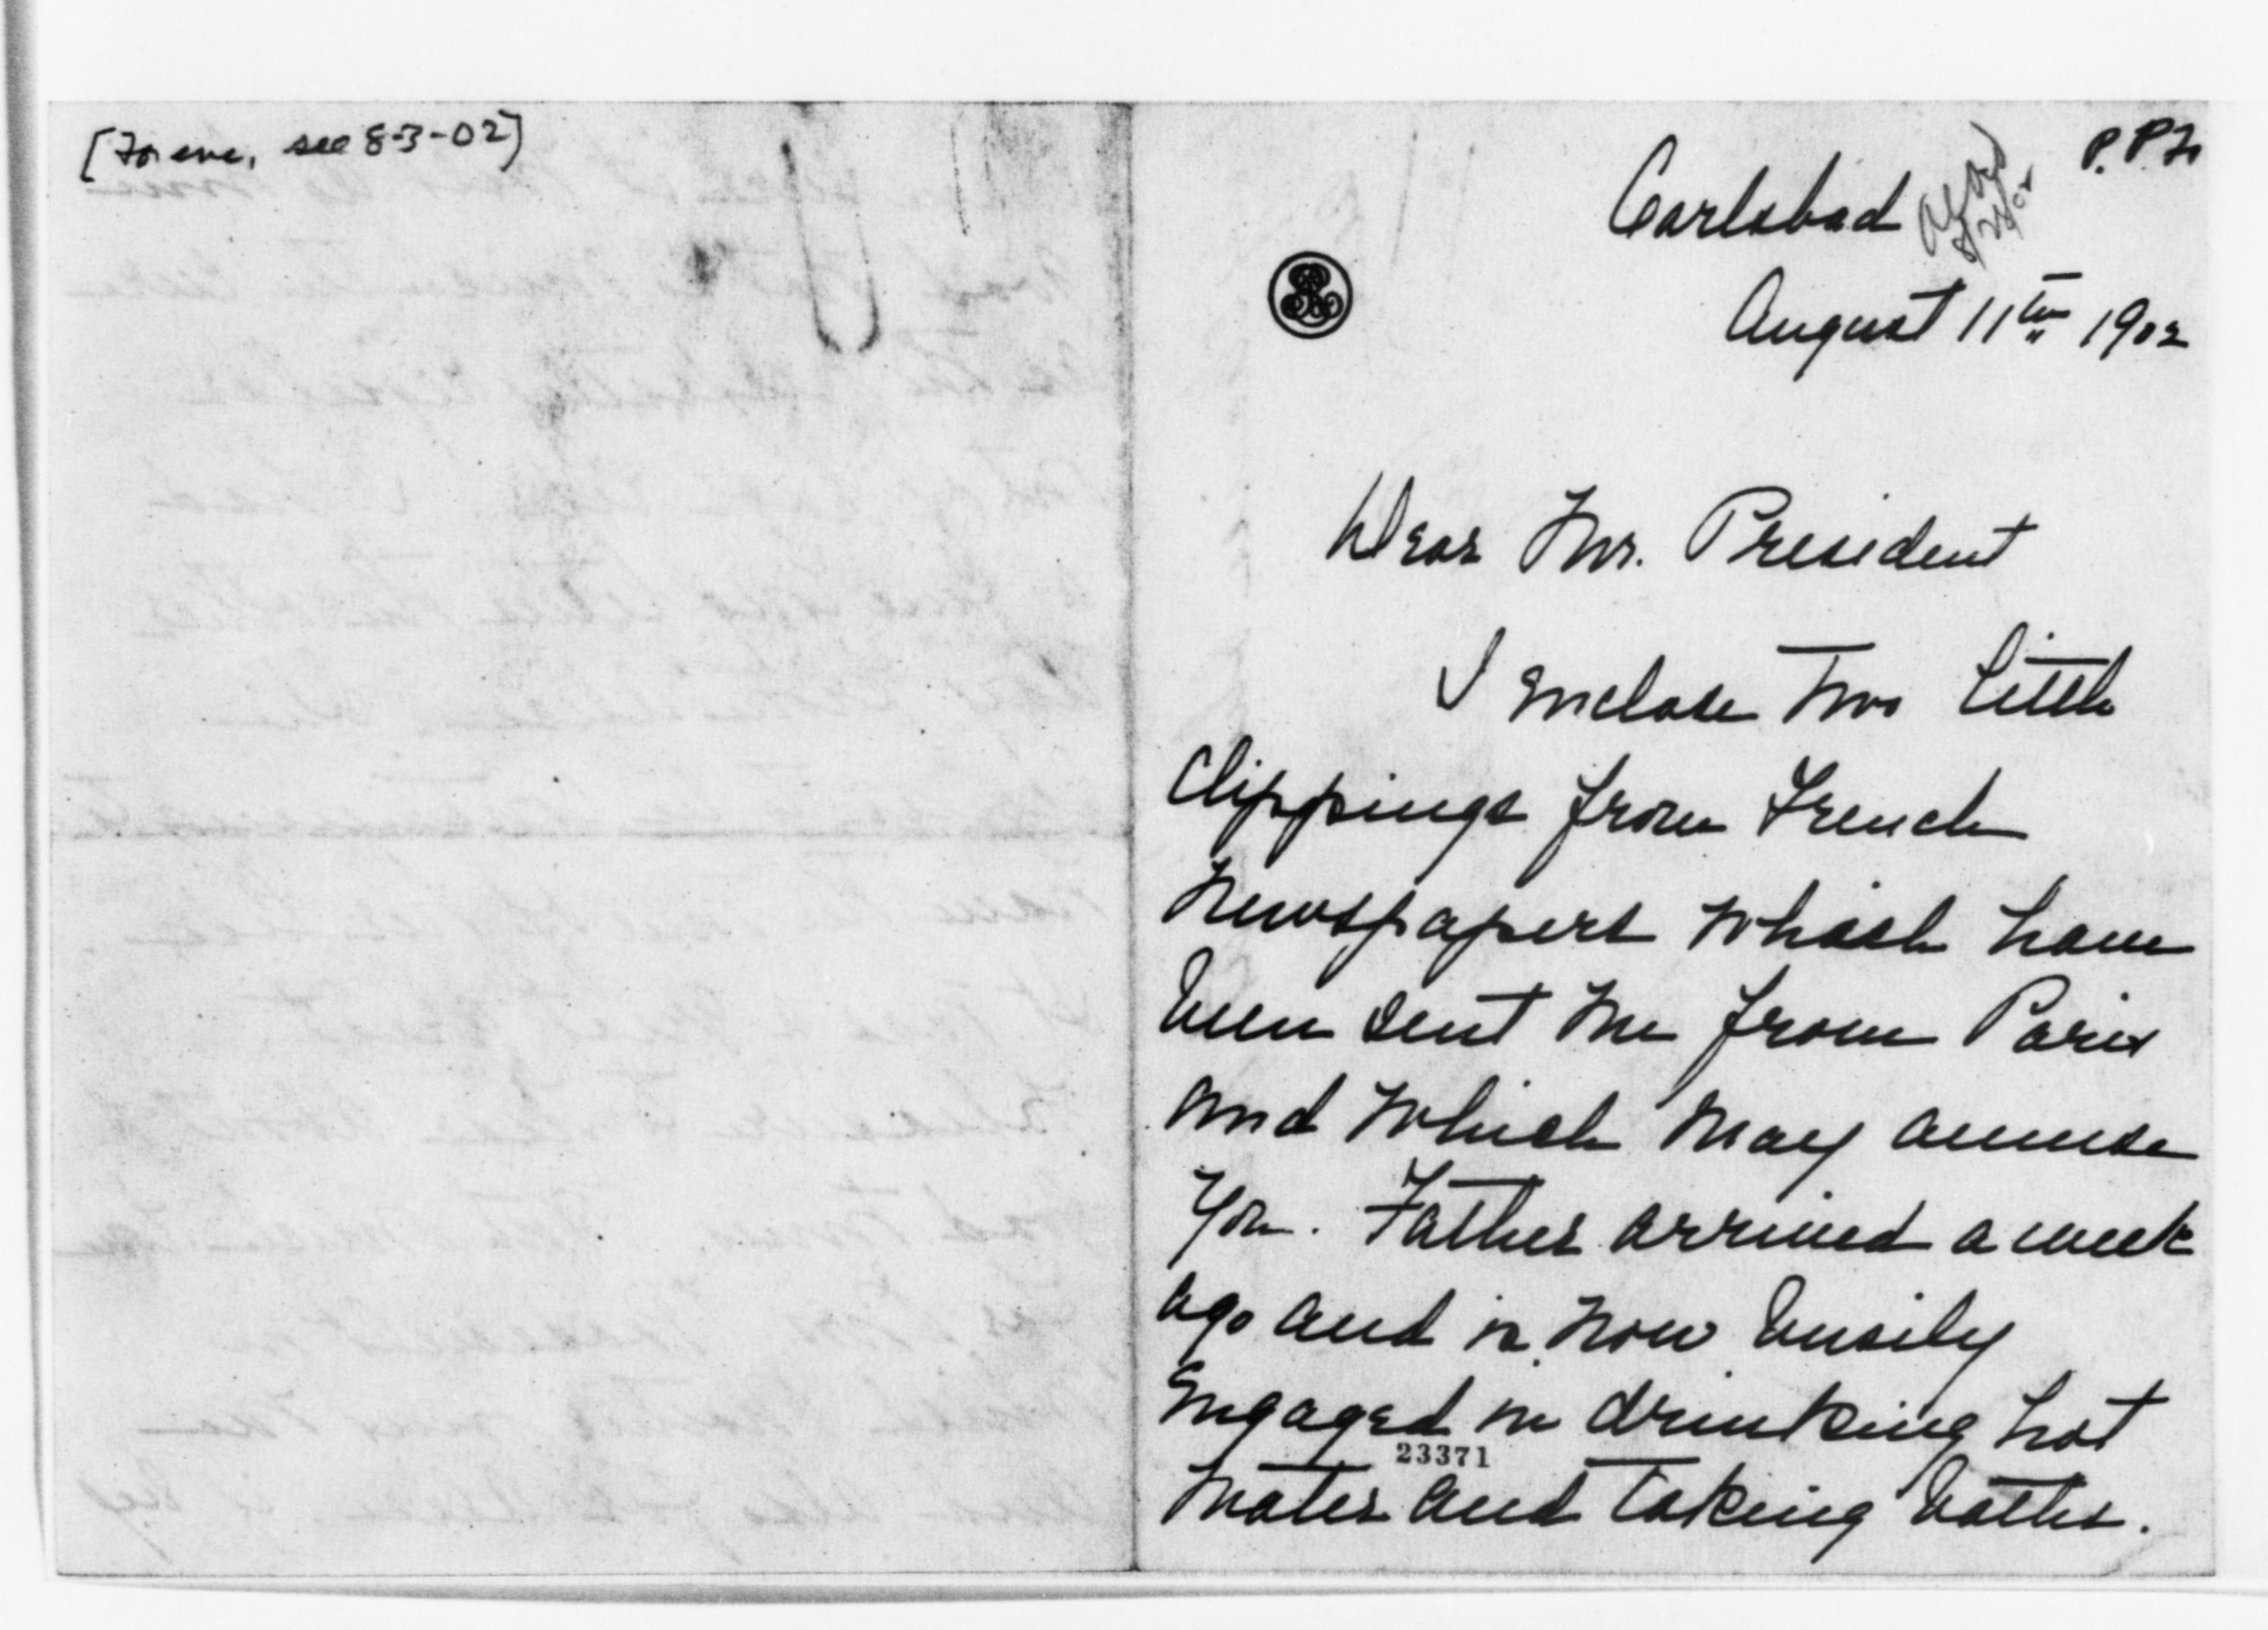 [For enc, see 8-3-02]
P.P.F.
Carlsbad
August 11th 1902
Dear Mr. President
I enclose two little
clippings from French
newspapers which have
been sent me from Paris
and which may amuse
you. Father arrived a week
ago and is now busily
engaged in drinking hot
23371
water and taking baths.